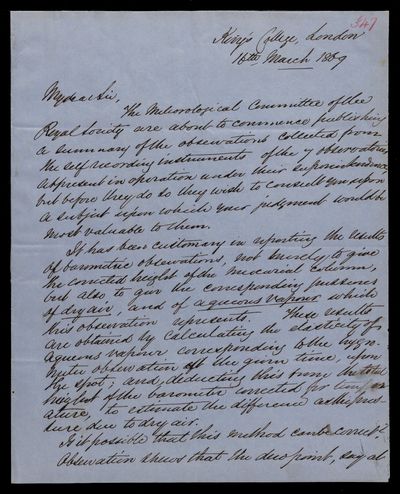 347
King's College, London
16th March 1869
My dear Sir,
The Meteorological Committee of the
Royal Society are about to commence publishing
a summary of the observations collected from
the self recording instruments of the 7 observatories
at present in operation under their superintendence,
but before they do so they wish to consult you upon
a subject upon which your judgment would be
most valuable to them.
It has been customary in reporting the results
of barometric observations, not merely to give
the corrected height of the mercurial column,
but also, to give the corresponding pressures
of dry air, and of aqueous vapour which
this observation represents. These results
are obtained by calculating the elasticity of
aqueous vapour, corresponding to the hygro-
meter observation at the given time, upon
the spot; and, deducting this from the total
height of the barometer corrected for temper-
ature, to estimate the difference as the pres-
sure due to dry air.
Is it possible that this method can be correct?
Observation shews that the dew point, say at